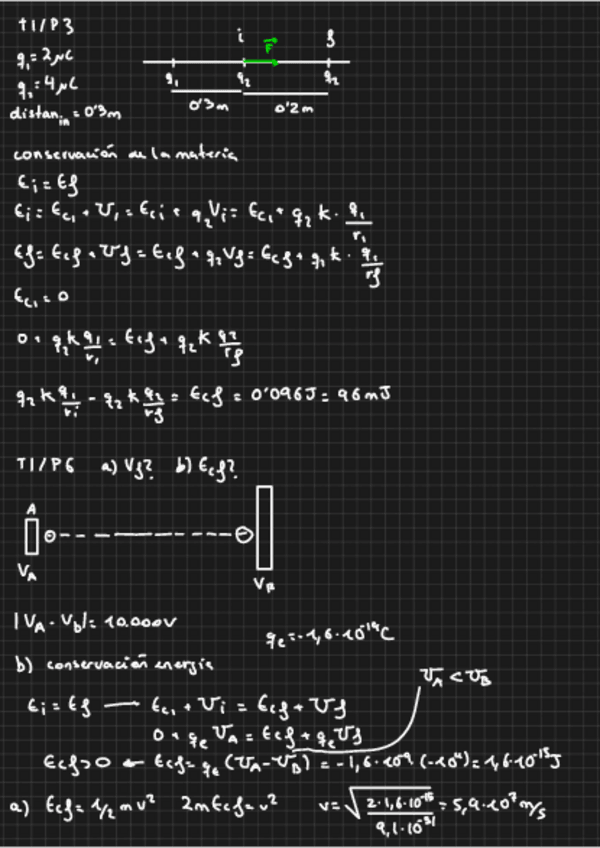 T1/P3
q₁ = 2 μC
q₂ = 4 μC
distan.in = 0'3m
i F f
q₁ q₂ q₂
0'3m 0'2m
conservación de la materia
Ei = Ef
Ei = Ec₁ + U₁ = Eci + q₂Vi = Ec₁ + q₂ k · q₁/r₁
Ef = Ecf + Uf = Ecf + q₂Vf = Ecf + q₂ k · q₁/rf
Ec₁ = 0
0 + q₂ k q₁/r₁ = Ecf + q₂ k q2/rf
q₂ k q₁/ri - q₂ k q₂/rf = Ecf = 0'096J = 96 mJ
T1/P6 a) Vf? b) Ecf?
A
V_A V_B
|V_A - V_b| = 10.000V
q_e = -1,6·10⁻¹⁹C
b) conservación energía
V_A < V_B
Ei = Ef — Ec₁ + Ui = Ecf + Uf
0 + q_e V_A = Ecf + q_e Vf
Ecf > 0 ← Ecf = q_e (V_A - V_B) = -1,6·10⁻¹⁹ (-10⁴) = 1,6·10⁻¹⁵J
a) Ecf = 1/2 m v² 2mEcf = v² v = √(2·1,6·10⁻¹⁵/9,1·10⁻³¹) = 5,9·10⁷ m/s